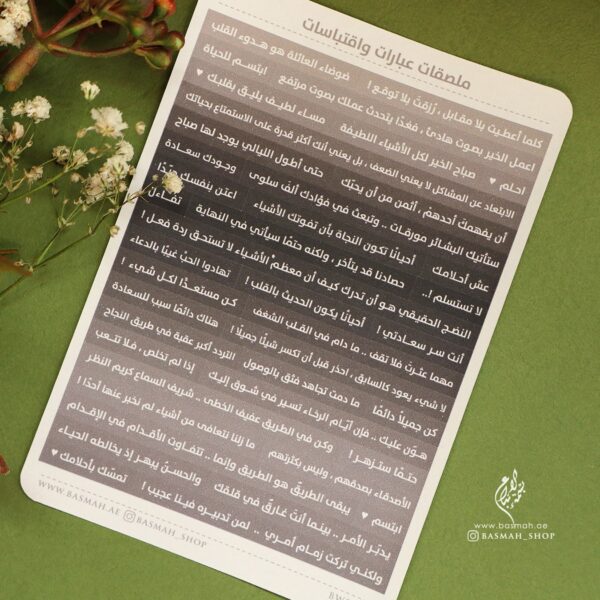 ملصقات عبارات واقتباسات
كلما أعطيت بلا مقابل ، رُزقتَ بلا توقع ! ضوضاء العائلة هو هدوء القلب
اعمل الخير بصوت هادئ ، فغدًا يتحدث عملك بصوت مرتفع ابتسم للحياة
احلم ♥ صباح الخير لكل الأشياء اللطيفة مساء لطيف يليق بقلبك ♥
الابتعاد عن المشاكل لا يعني الضعف ، بل يعني أنك أكثر قدرة على الاستمتاع بحياتك
أن يفهمك أحدهمْ ، أثمن من أن يحبّك حتى أطول الليالي يوجد لها صباح
ستأتيك البشائر مورقات .. وتبعث في فؤادك ألف سلوى وجودك سعادة
عش أحلامك أحيانًا تكون النجاة بأن تفوتك الأشياء اعتن بنفسك جيّدًا
لا تستسلم !.. حصادنا قد يتأخر ، ولكنه حتمًا سيأتي في النهاية تفاءل
النضج الحقيقي هو أن تدرك كيف أن معظم الأشياء لا تستحق ردة فعل !
أنت سر سعادتي ! أحيانًا يكون الحديث بالقلب ! تهادوا الحبّ غيبًا بالدعاء
مهما عثرتَ فلا تقف .. ما دام في القلب الشغف كن مستعدًا لكل شيء !
لا شيء يعود كالسابق ، احذر قبل أن تكسر شيئًا جميلًا ! هناك دائمًا سبب للسعادة
كن جميلًا دائمًا ما دمت تجاهد فثق بالوصول التردد أكبر عقبة في طريق النجاح
هوّن عليك .. فإن أيّام الرخاء تسير في شوق إليك إذا لم تخلص ، فلا تتعب
حتمًا ستزهر ! وكن في الطريق عفيف الخطى .. شريف السماع كريم النظر
الأصدقاء بصدقهم ، وليس بكثرتهم ما زلنا نتعافى من أشياء لم نخبر عنها أحدًا !
ابتسم ♥ يبقى الطريق هو الطريق وإنما .. تتفاوت الأقدام في الإقدام
يدبّر الأمر .. بينما أنت غارقٌ في قلقك والحسنُ يبهر إذ يخالطه الحياء
ولكني تركت زمام أمري .. لمن تدبيره فينا عجيب ! تمسّك بأحلامك ♥
WWW.BASMAH.AE BASMAH_SHOP
www.basmah.ae
BASMAH_SHOP